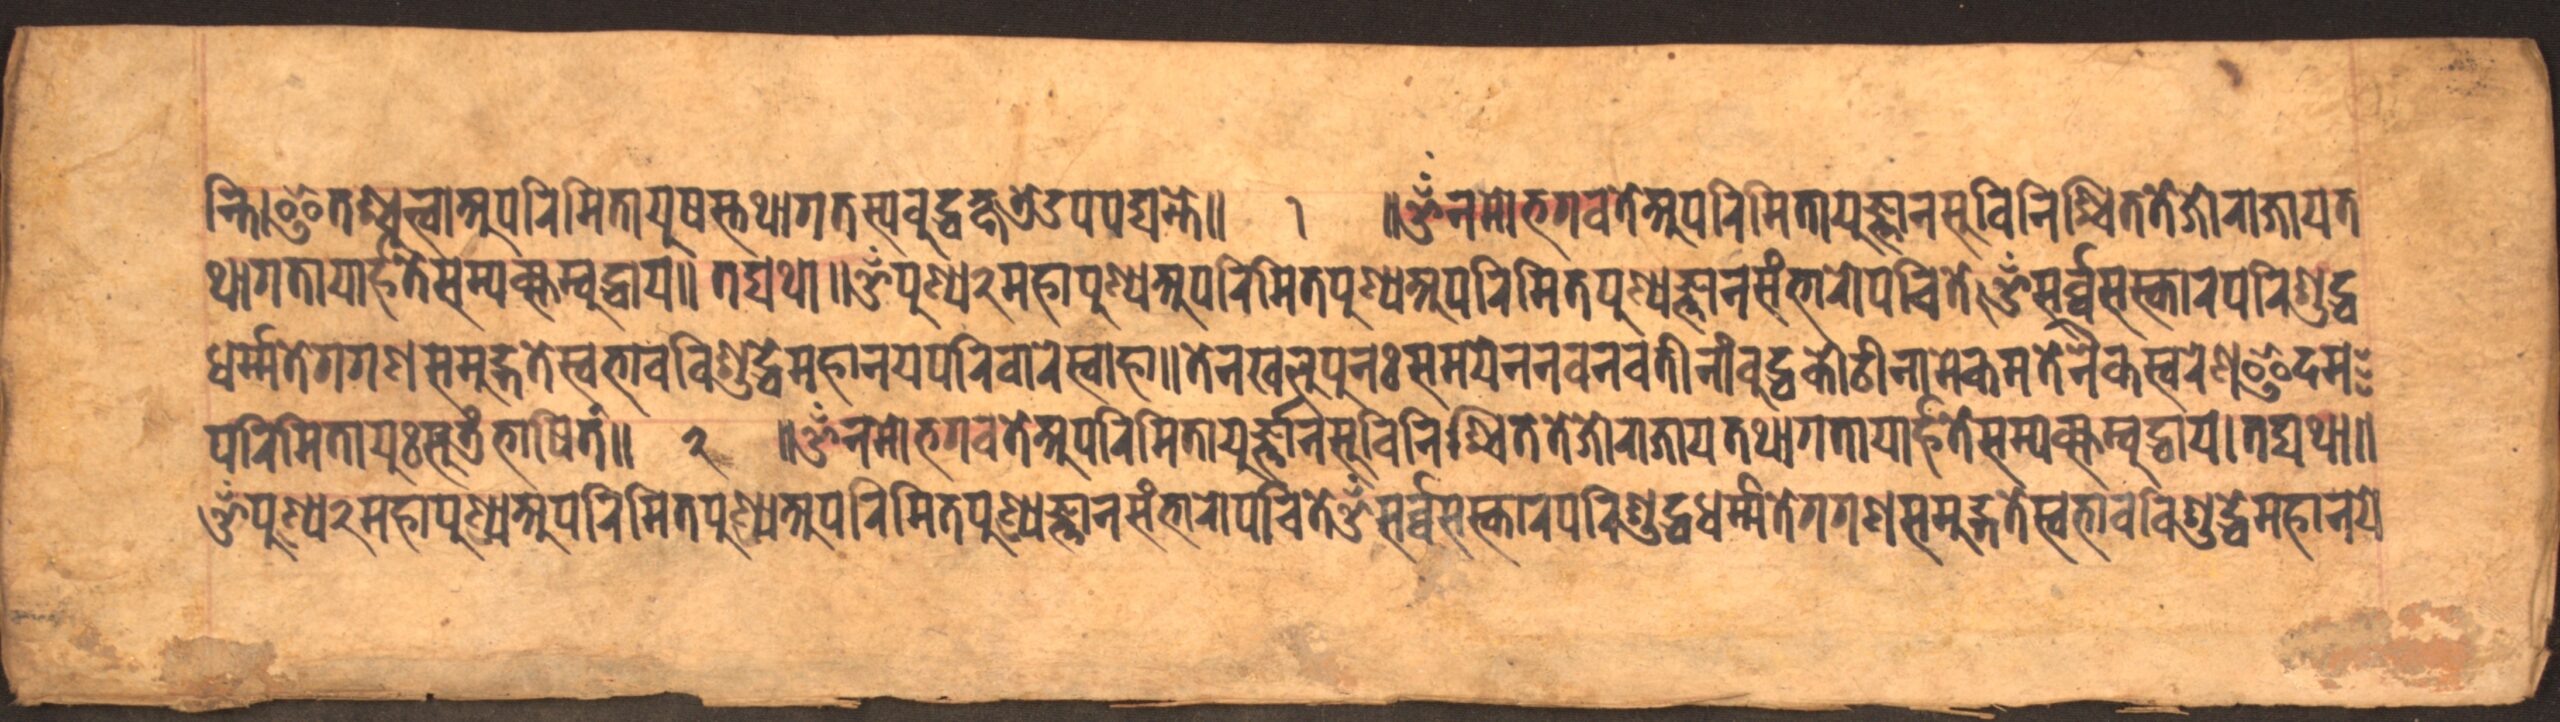 न्ति।इतश्च्युत्वाअपरिमितायुषस्तथागतस्यबुद्धक्षत्रेउपपद्यन्ते॥ १ ॥ॐनमोभगवतेअपरिमितायुज्ञानसुविनिश्चिततेजोराजायत
थागतायार्हतेसम्यक्सम्बुद्धाय॥ तद्यथा॥ॐपुण्य२महापुण्यअपरिमितपुण्यअपरिमितपुण्यज्ञानसंभारोपचिते।ॐसर्व्वसस्कारपरिशुद्ध
धर्म्मतेगगणसमुद्गतेस्वभावविशुद्धेमहानयपरिवारेस्वाहा॥तेनखलुपुनःसमयेननवनवतीनांबुद्धकोटीनामेकमतेनैकस्वरेणइदम
परिमितायुःसूत्रंभाषितं॥ २ ॥ॐनमोभगवतेअपरिमितायुर्ज्ञानसुविनिश्चिततेजोराजायतथागतायार्हतेसम्यक्सम्बुद्धाय।तद्यथा॥
ॐपुण्य२महापुण्यअपरिमितपुण्यअपरिमितपुण्यज्ञानसंभारोपचितेॐसर्व्वसस्कारपरिशुद्धधर्म्मतेगगणसमुद्गतेस्वभावविशुद्धेमहानये